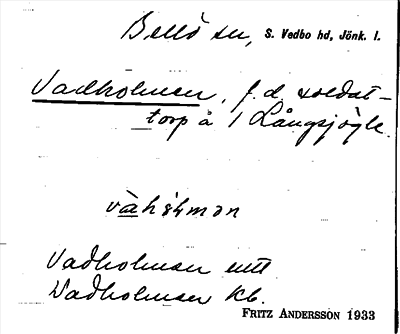 Bellö sn, S. Vedbo hd, Jönk. l.
Vadholmen, f.d. soldat-
torp å
Vadholmen utt
Vadholmen kb.
FRITZ ANDERSSON 1933